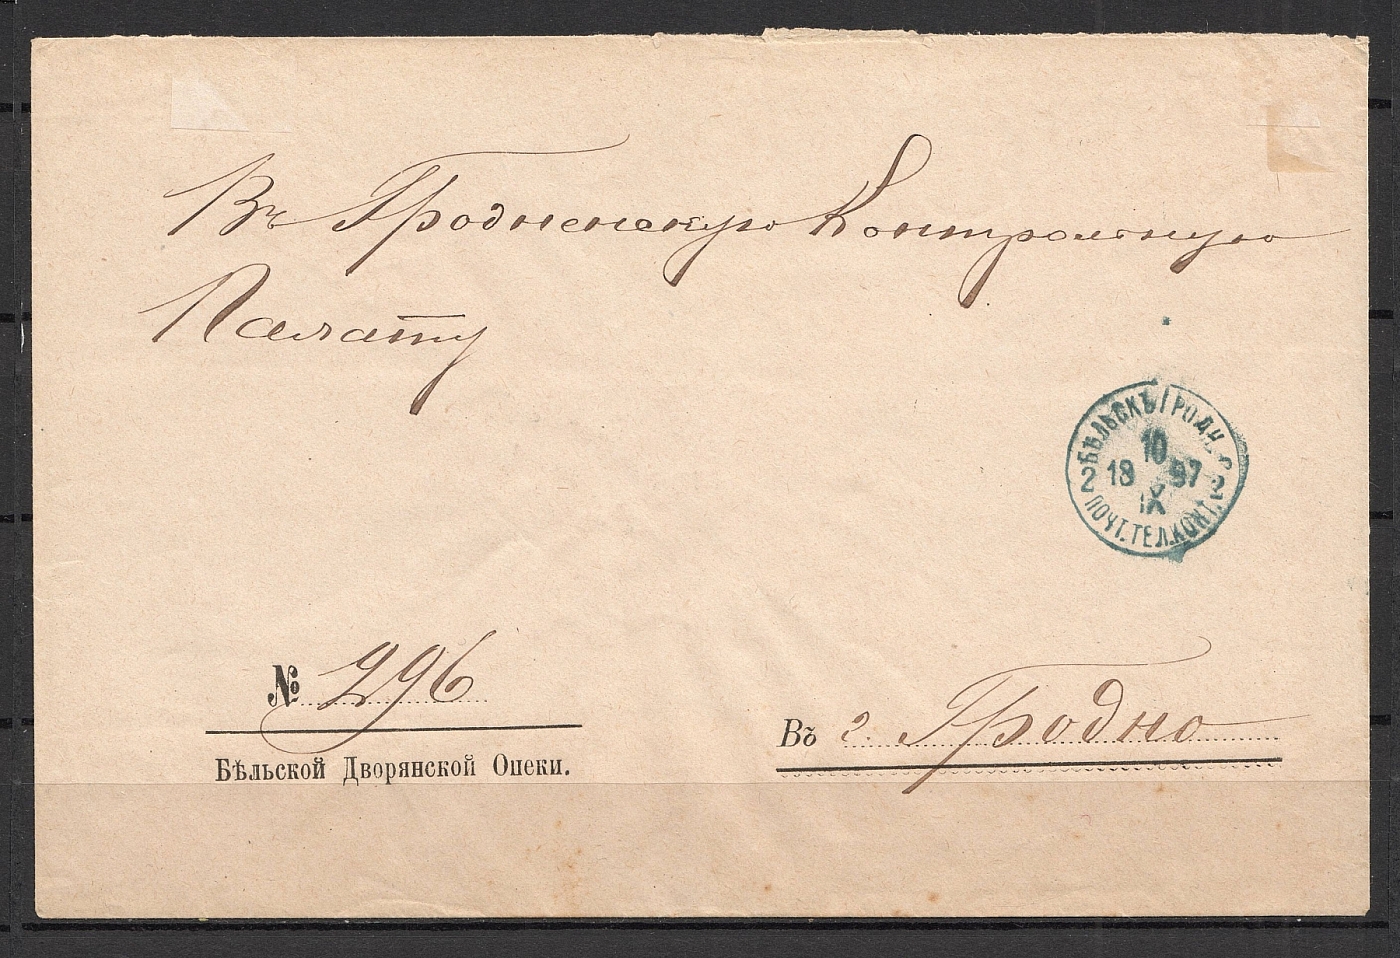 Въ Гродненскую Контрольную
Палату
БѢЛЬСКЪ ГРОДН. Г.
10
18 97
IX
2 2
ПОЧТ. ТЕЛ. КОНТ.
№ 296
Бѣльской Дворянской Опеки.
Въ г. Гродно